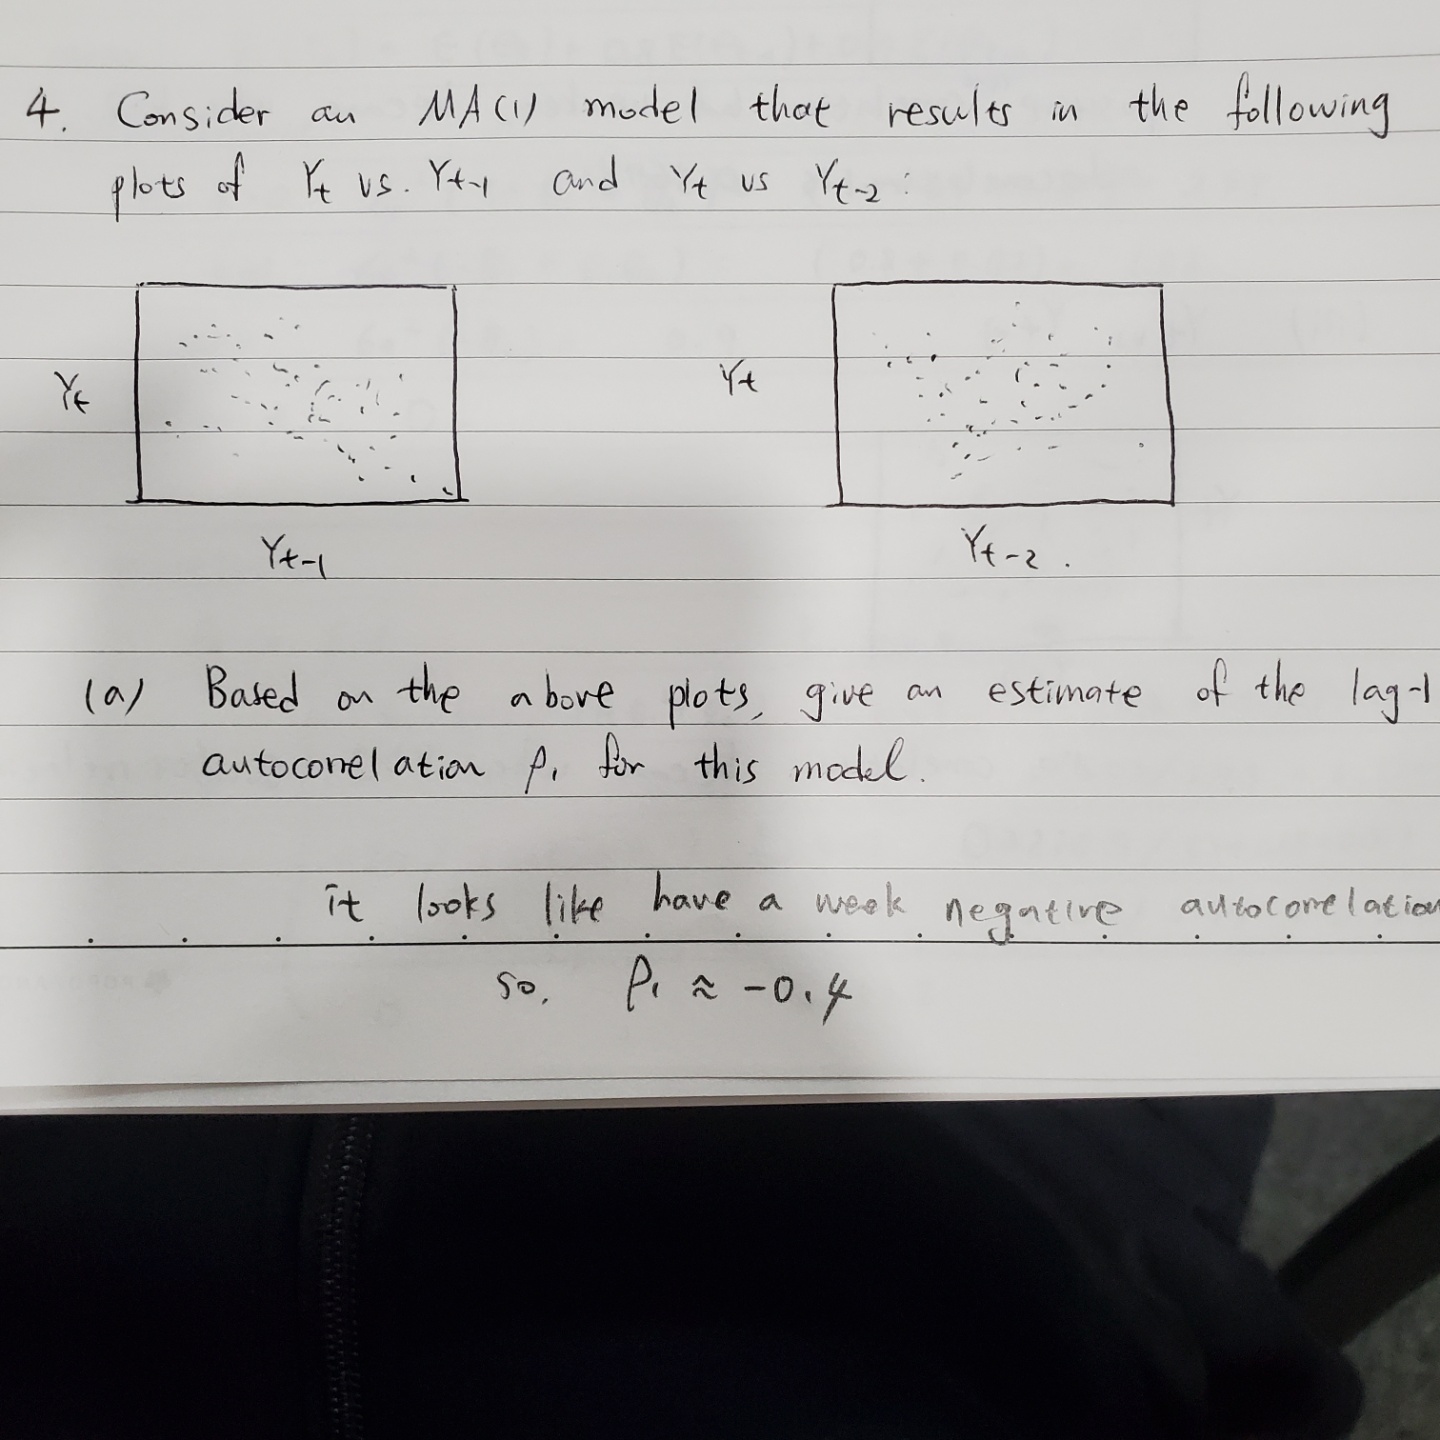 4. Consider an MA(1) model that results in the following
plots of Yt vs. Yt-1 and Yt vs Yt-2 :
Yt
Yt
Yt-1
Yt-2 .
(a) Based on the above plots, give an estimate of the lag-1
autocorrelation ρ₁ for this model.
it looks like have a week negative autocorrelation
so, ρ₁ ≈ -0.4